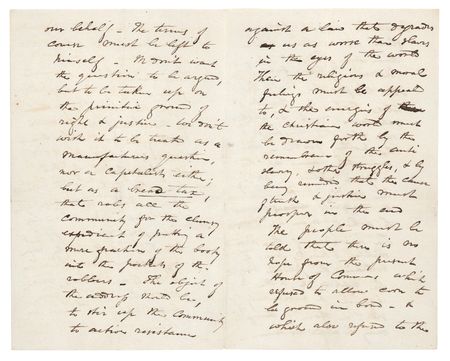 our behalf – The terms of
course must be left to
himself – We don't want
the question to be argued,
but to be taken up on
the primitive ground of
right & justice – We don't
wish it to be treated as a
manufacturers question,
nor a Capitalists either;
but as a bread tax,
that robs all the
community for the clumsy
expedient of putting a
mere fraction of the booty
into the pockets of the
robbers – The object of
the address must be,
to stir up the community
to active resistance
against a law that degrades
us as worse than slaves
in the eyes of the world
Then the religious & moral
feelings must be appealed
to, & the energies of
the Christian world must
be drawn forth by the
remembrance of the anti
slavery, & other struggles, & by
being reminded that the cause
of truth & justice must
prosper in the end
The people must be
told that there is no
hope from the present
House of Commons which
refused to allow corn to
be ground in bond – &
which also refused to the